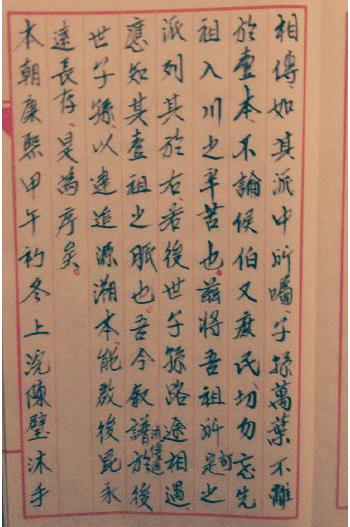 相傳、如其派中所囑、子孫萬葉不離
於壹本、不論侯伯又庶民、切勿忘先
祖入川之辛苦也。茲將吾祖所定之
派列其於右、若後世子孫路途相遇、可
應如其壹祖之脈也。吾今叙譜於後
世子孫、以達追源溯本、能啟後昆永
遠長存、是為序矣。
本朝康熙甲午初冬上浣陳璧沐手